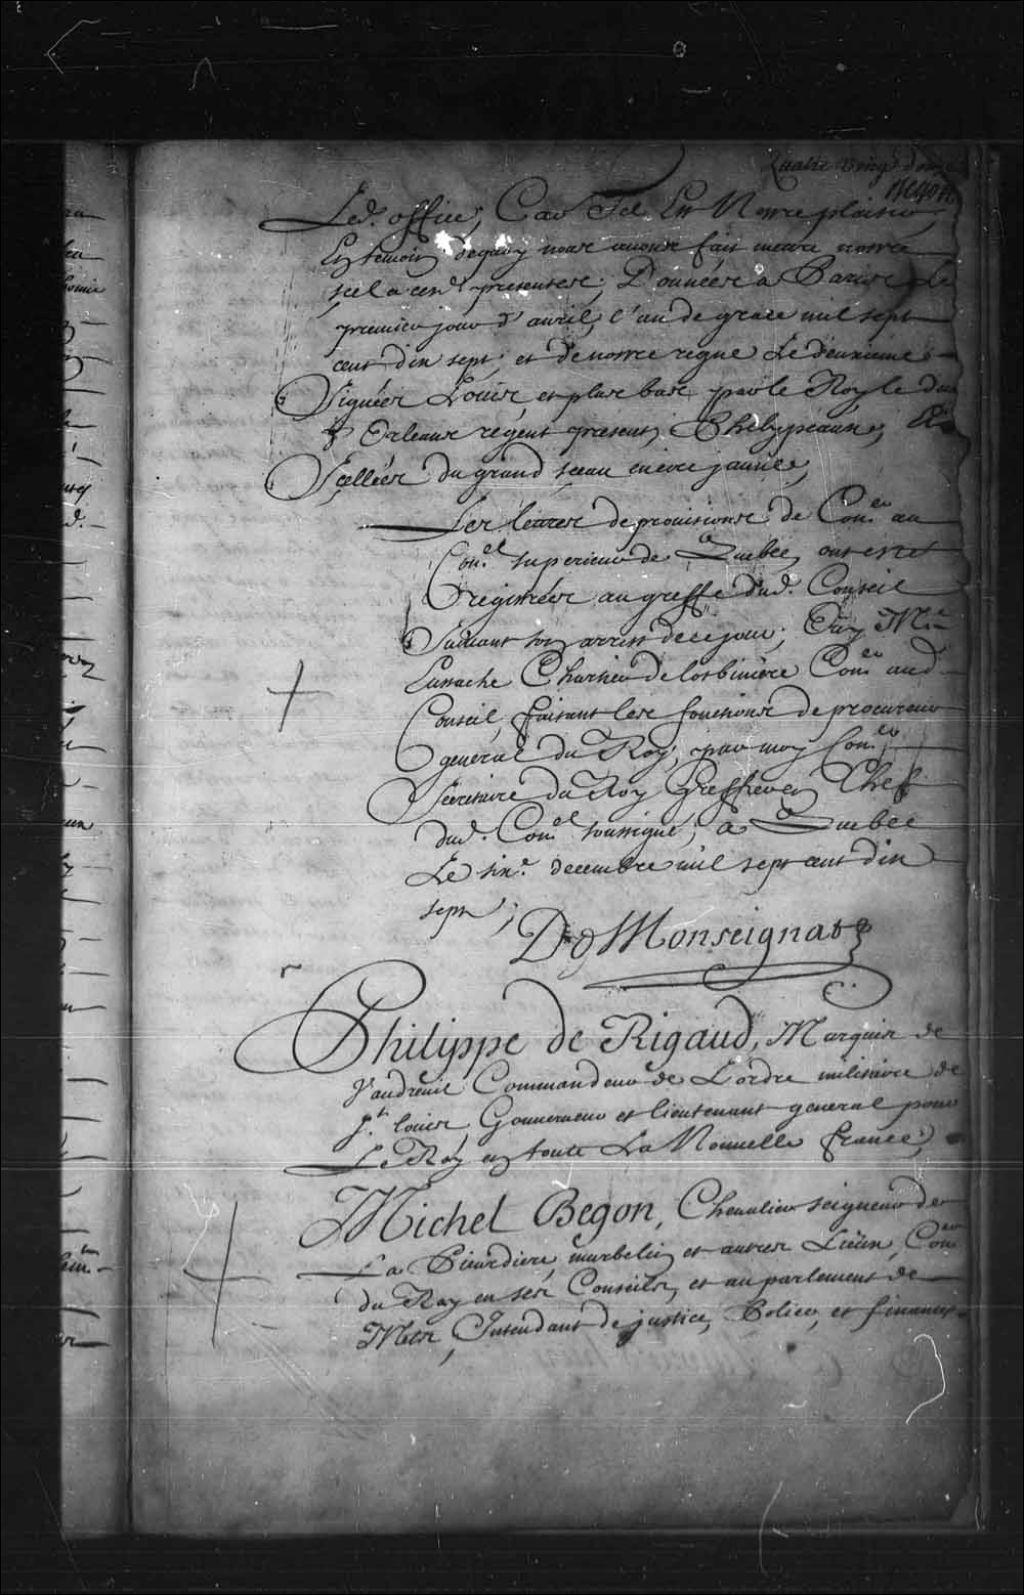 Quatre vingt douze
Begon
Led. office, Car Tel Est Nostre plaisir,
En temoin dequoy nous avons fait mettre nostre
scel a cesd. presentes, Données a Paris le
premier jour d'avril, l'an de grace mil sept
cent dix sept, et de nostre regne Le deuxieme
Signées Louis, et plus bas par le Roy le duc
d'Orleans regent present, Phelypeaux, Et
Scellées du grand sceau en cire jaune,
Les lettres de provisions de Con.er au
Con.el superieur de Quebec, ont esté
registrées au greffe dud. Conseil
Suivant son arrest de ce jour, Ouy M.e
Eustache Chartier de lotbiniere Con.er aud.
Conseil, faisant les fonctions de procureur
general du Roy, par moy Con.er
Secretaire du Roy Greffier en Chef
dud. Con.el soussigné, a Quebec
Le six.e decembre mil sept cent dix
sept;
De Monseignat
Philippe de Rigaud, Marquis de
Vaudreuil Commandeur de L'ordre militaire de
S.t louis, Gouverneur et lieutenant general pour
Le Roy en toute La Nouvelle france,
Michel Begon, Chevalier seigneur de
La Picardiere, murbelin et autres Lieux, Con.er
du Roy en ses Conseils, et au parlement de
Metz, Intendant de justice, Police, et finances